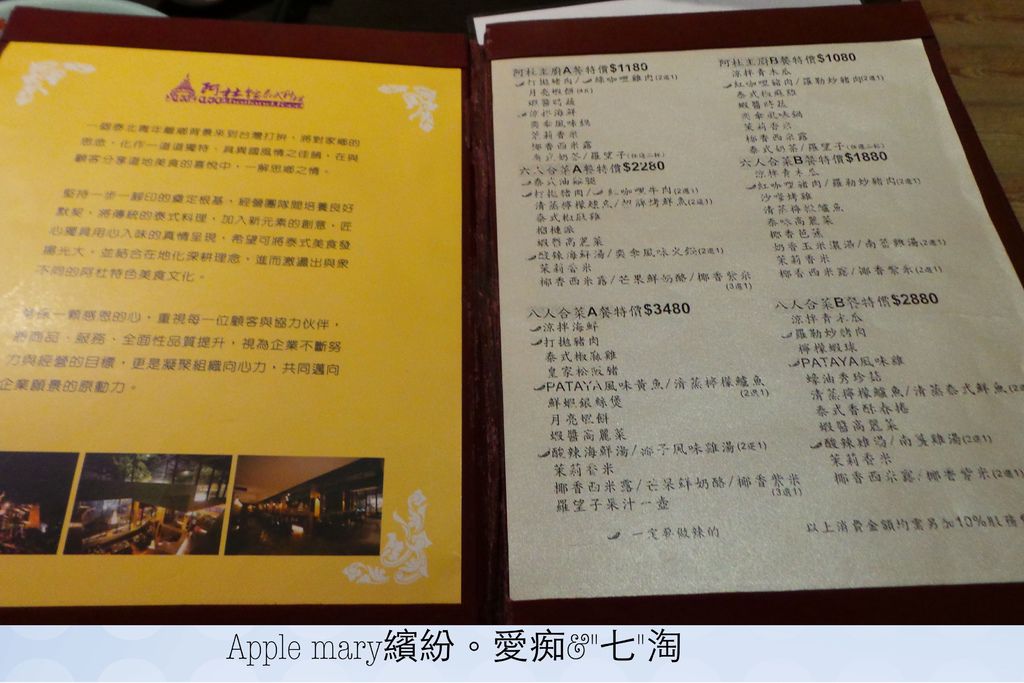 一個泰北青年離鄉背景來到台灣打拚，將對家鄉的
思念，化作一道道獨特、具異國風情之佳餚，在與
顧客分享道地美食的喜悅中，一解思鄉之情。
堅持一步一腳印的奠定根基，經營團隊間培養良好
默契，將傳統的泰式料理，加入新元素的創意，匠
心獨具用心入味的真情呈現，希望可將泰式美食發
揚光大，並結合在地化深耕理念，進而激盪出與眾
不同的阿杜特色美食文化。
一顆感恩的心，重視每一位顧客與協力伙伴，
將商品、服務、全面性品質提升，視為企業不斷努
力與經營的目標，更是凝聚組織向心力，共同邁向
企業願景的原動力。
阿杜主廚A餐特價$1180
打拋豬肉/綠咖哩雞肉(2選1)
月亮蝦餅
蝦醬時蔬
涼拌海鮮
奕奈風味鍋
茉莉香米
椰香西米露
泰式奶茶/羅望子
六人合菜A餐特價$2280
打拋豬肉/紅咖哩牛肉(2選1)
清蒸檸檬鱸魚/
泰式椒麻雞
榴槤派
蝦醬高麗菜
酸辣海鮮湯/奕奈風味火鍋(2選1)
茉莉香米
椰香西米露/芒果鮮奶酪/椰香紫米
(3選1)
八人合菜A餐特價$3480
涼拌海鮮
打拋豬肉
泰式椒麻雞
皇家松阪豬
PATAYA風味黃魚/清蒸檸檬鱸魚
(2選1)
鮮蝦銀絲煲
月亮蝦餅
蝦醬高麗菜
酸辣海鮮湯/椰子風味雞湯(2選1)
茉莉香米
椰香西米露/芒果鮮奶酪/椰香紫米
(3選1)
羅望子果汁一壺
一定要做辣的
阿杜主廚B餐特價$1080
涼拌青木瓜
紅咖哩豬肉/羅勒炒豬肉(2選1)
泰式椒麻雞
蝦醬時蔬
奕奈風味鍋
茉莉香米
椰香西米露
泰式奶茶/羅望子
六人合菜B餐特價$1880
涼拌青木瓜
紅咖哩豬肉/羅勒炒豬肉(2選1)
沙嗲烤雞
清蒸檸檬鱸魚
泰味高麗菜
椰香芭蕉
奶香玉米濃湯/南薑雞湯(2選1)
茉莉香米
椰香西米露/椰香紫米(2選1)
八人合菜B餐特價$2880
涼拌青木瓜
羅勒炒豬肉
檸檬蝦球
PATAYA風味雞
蠔油秀珍菇
清蒸檸檬鱸魚/清蒸泰式鮮魚(2選1)
泰式香酥春捲
蝦醬高麗菜
酸辣雞湯/南薑雞湯(2選1)
茉莉香米
椰香西米露/椰香紫米(2選1)
以上消費金額均需另加10%服務
Apple mary繽紛。愛痴&"七"淘